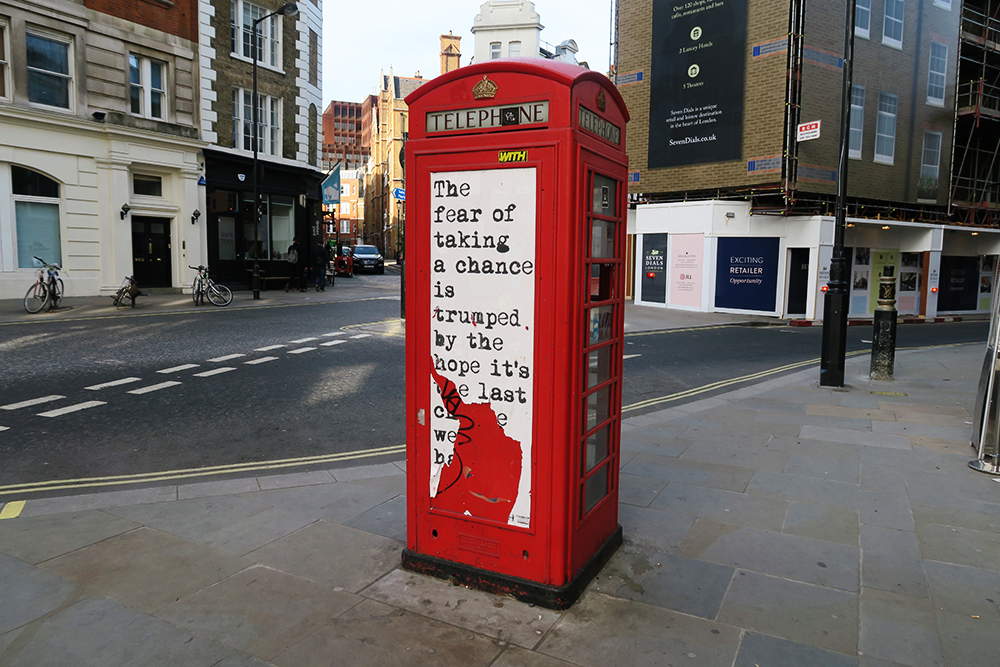 Over 120 shops,
cafes, restaurants and bars
2 Luxury Hotels
3 Theatres
Seven Dials is a unique
retail and leisure
destination in the
heart of London.
SevenDials.co.uk
TELEPHONE
TELEPHONE
WITH
The
fear of
taking
a chance
is
trumped
by the
hope it's
the last
we
ba
SEVEN
DIALS
LONDON
EXCITING
RETAILER
Opportunity